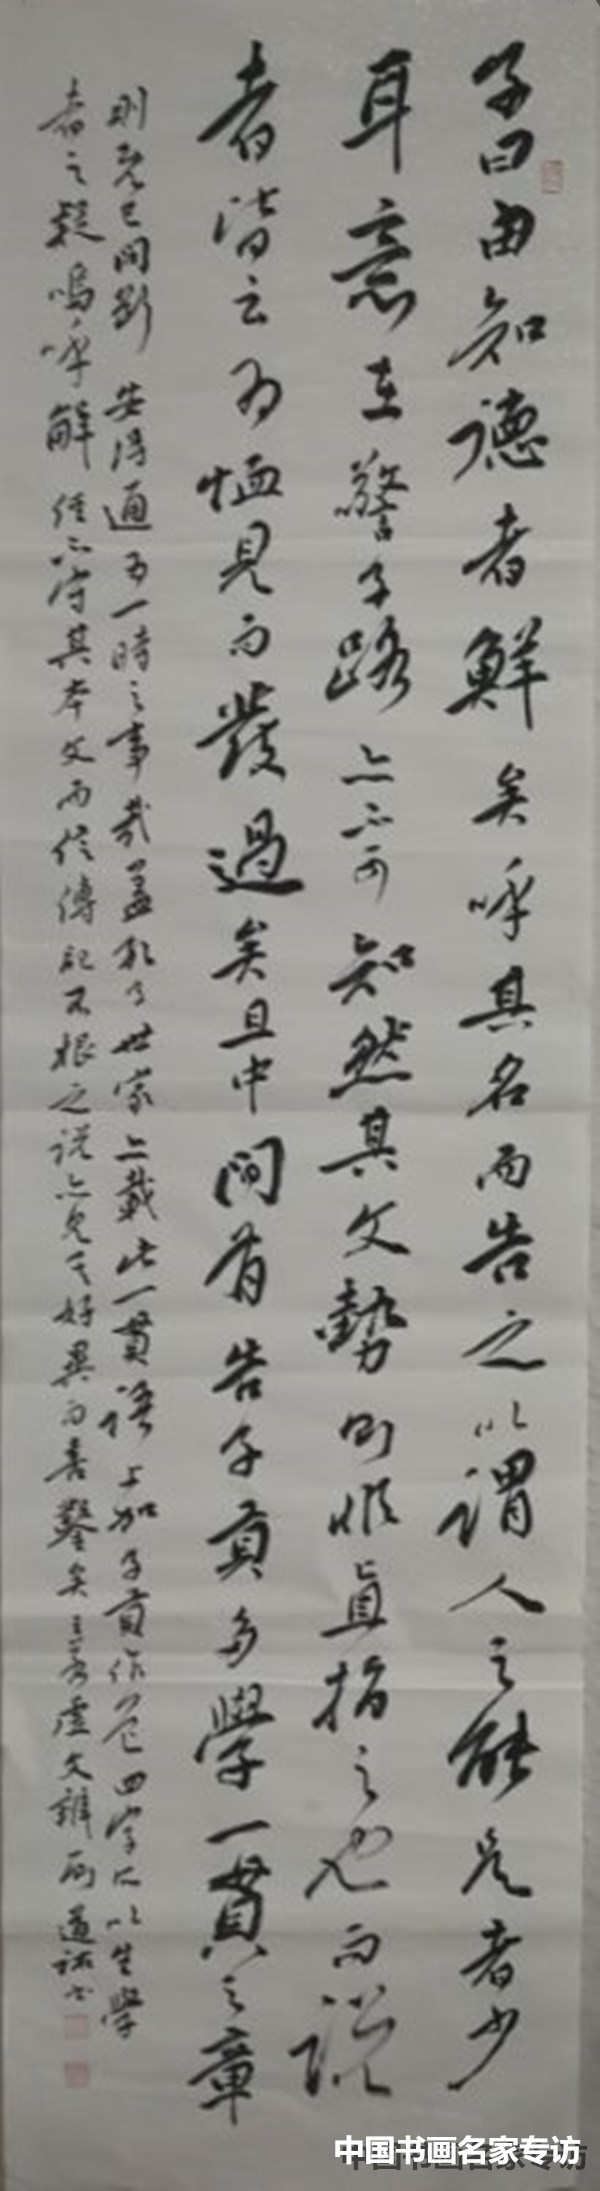 子曰由知德者鮮矣呼其名而告之以謂人之能是者少
耳意在警子路亦不可知然其文勢則恐直指之也而說
者皆云為愠見而發過矣且中間有告子貢多學一貫之章
則既已間斷安得通為一時之事哉蓋孔子世家亦載此一貫語上加子貢作色四字所以生學
者之疑嗚呼解經不守其本文而信傳記不根之說亦見其好異而喜鑿矣王若虛文辨 道
中国书画名家专访